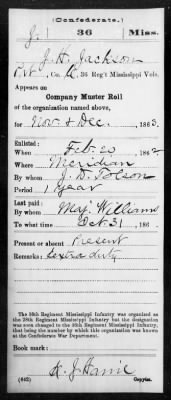 (Confederate.)
J. 36 Miss.
J. H. Jackson
Pvt, Co. 36 Reg't Mississippi Vols.
Appears on
Company Muster Roll
of the organization named above,
for Nov & Dec, 1863.
Enlisted:
When Feb. 20, 1862
Where Meridian
By whom J. D. Tolson
Period 1 year
Last paid:
By whom Maj. Williams
To what time Oct. 31, 186 .
Present or absent Present
Remarks: extra duty
The 36th Regiment Mississippi Infantry was organized as
the Regiment Mississippi Infantry but the designation
was soon changed to the 36th Regiment Mississippi Infantry,
that being the number by which this organization was known at
the Confederate War Department.
Book mark:
(642) Copyist.